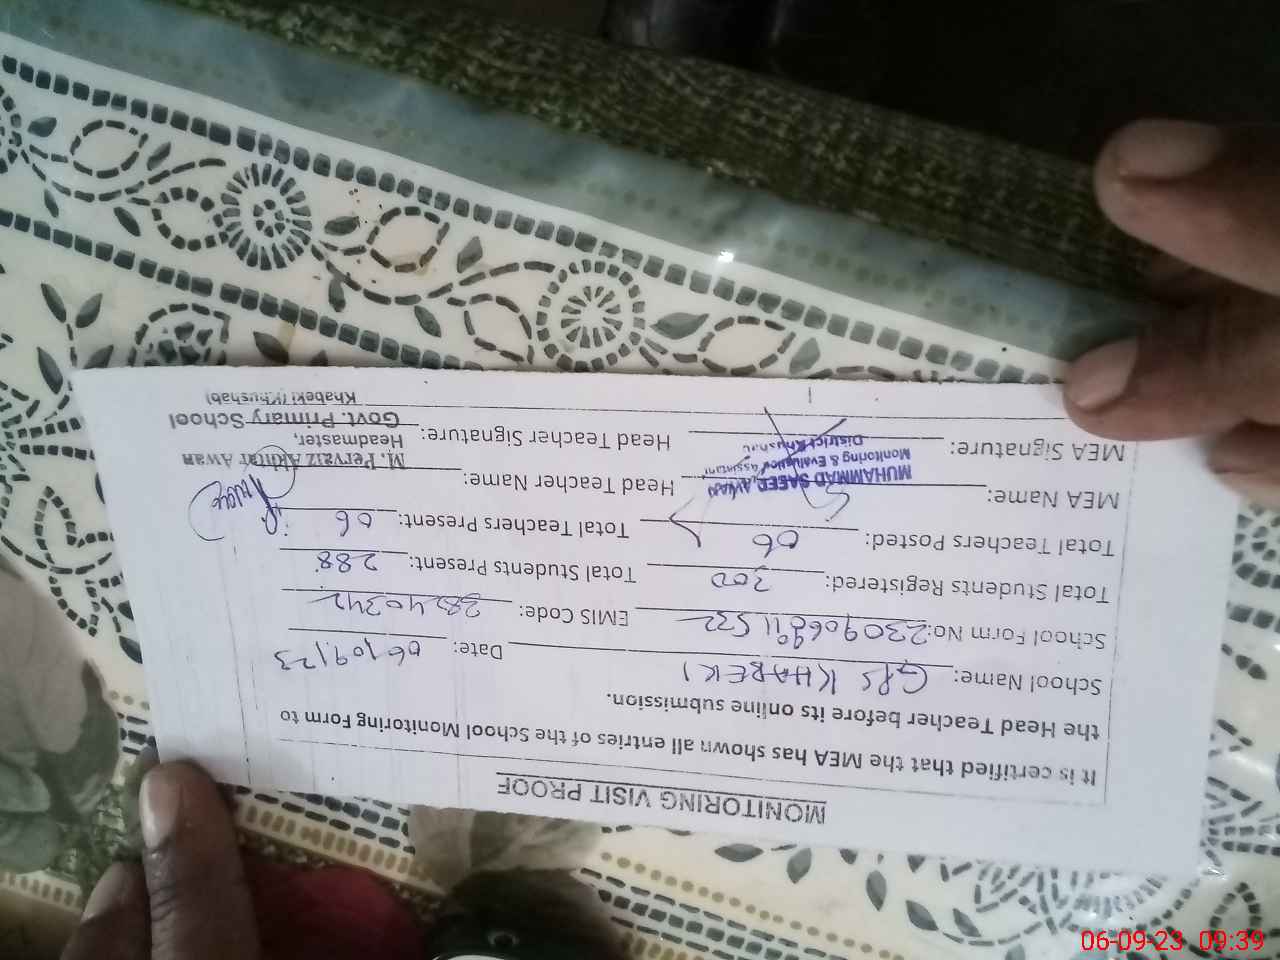 MONITORING VISIT PROOF
It is certified that the MEA has shown all entries of the School Monitoring Form to
the Head Teacher before its online submission.
School Name: GPS KHABEKI Date: 06/09/23
School Form No: EMIS Code: 38240342
Total Students Registered: 300 Total Students Present: 288
Total Teachers Posted: 06 Total Teachers Present: 06
MEA Name: MUHAMMAD SAEED AWAN Head Teacher Name: M. Pervaiz Akhtar Awan
Monitoring & Evaluation assistant Headmaster,
MEA Signature: District Khushab Head Teacher Signature: Govt. Primary School
Khabeki (Khushab)
06-09-23 09:39